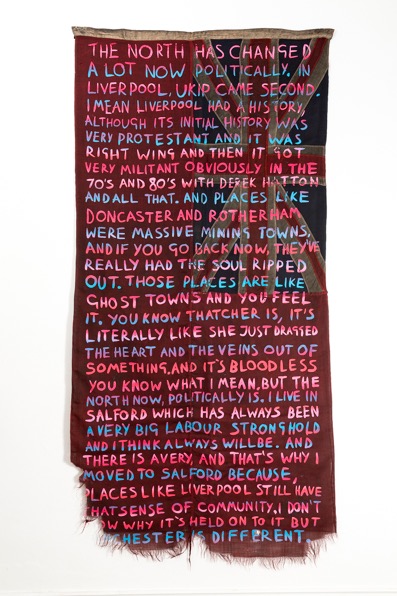 THE NORTH HAS CHANGED
A LOT NOW POLITICALLY. IN
LIVERPOOL, UKIP CAME SECOND.
I MEAN LIVERPOOL HAD A HISTORY,
ALTHOUGH ITS INITIAL HISTORY WAS
VERY PROTESTANT AND IT WAS
RIGHT WING AND THEN IT GOT
VERY MILITANT OBVIOUSLY IN THE
70'S AND 80'S WITH DEREK HATTON
AND ALL THAT. AND PLACES LIKE
DONCASTER AND ROTHERHAM
WERE MASSIVE MINING TOWNS.
AND IF YOU GO BACK NOW, THEY'VE
REALLY HAD THE SOUL RIPPED
OUT. THOSE PLACES ARE LIKE
GHOST TOWNS AND YOU FEEL
IT. YOU KNOW THATCHER IS, IT'S
LITERALLY LIKE SHE JUST DRAGGED
THE HEART AND THE VEINS OUT OF
SOMETHING, AND IT'S BLOODLESS
YOU KNOW WHAT I MEAN, BUT THE
NORTH NOW, POLITICALLY IS. I LIVE IN
SALFORD WHICH HAS ALWAYS BEEN
A VERY BIG LABOUR STRONGHOLD
AND I THINK ALWAYS WILL BE. AND
THERE IS A VERY, AND THAT'S WHY I
MOVED TO SALFORD BECAUSE,
PLACES LIKE LIVERPOOL STILL HAVE
THAT SENSE OF COMMUNITY, I DON'T
OW WHY IT'S HELD ON TO IT BUT
CHESTER IS DIFFERENT.